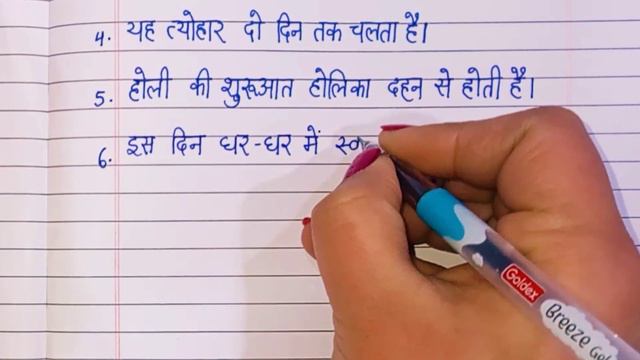 4. यह त्योहार दो दिन तक चलता है।
5. होली की शुरूआत होलिका दहन से होती है।
6. इस दिन घर-घर में
Goldex
Breeze Gel